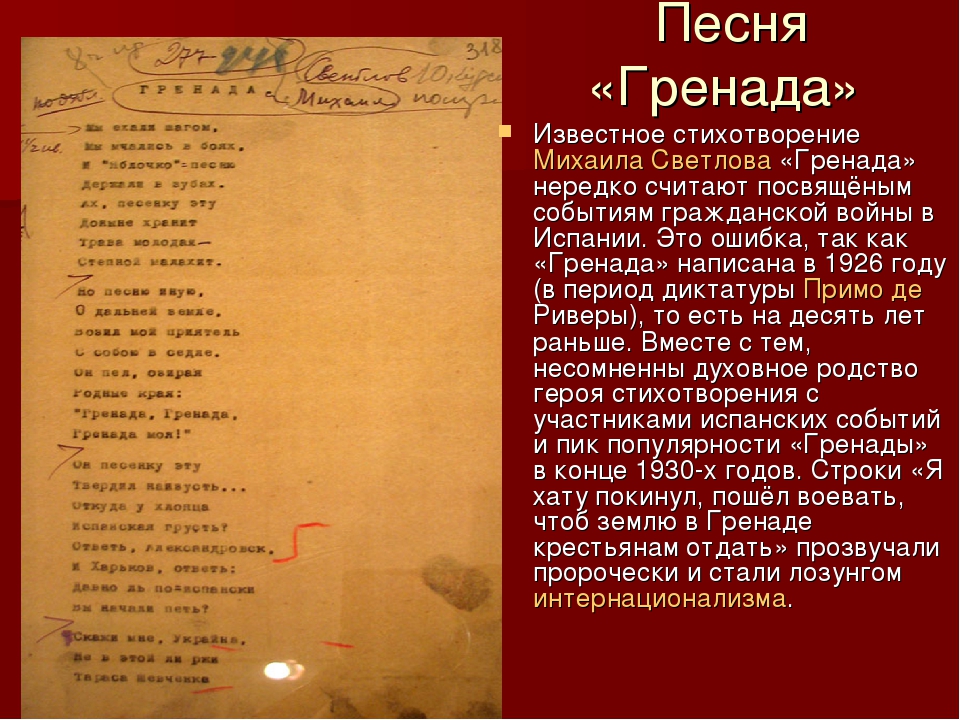 Песня
«Гренада»
Известное стихотворение
Михаила Светлова «Гренада»
нередко считают посвящёным
событиям гражданской войны в
Испании. Это ошибка, так как
«Гренада» написана в 1926 году
(в период диктатуры Примо де
Риверы), то есть на десять лет
раньше. Вместе с тем,
несомненны духовное родство
героя стихотворения с
участниками испанских событий
и пик популярности «Гренады»
в конце 1930-х годов. Строки «Я
хату покинул, пошёл воевать,
чтоб землю в Гренаде
крестьянам отдать» прозвучали
пророчески и стали лозунгом
интернационализма.
277 318
Светлов
Михаил
ГРЕНАДА
Мы ехали шагом,
Мы мчались в боях,
И "Яблочко"-песню
Держали в зубах.
Ах, песенку эту
Доныне хранит
Трава молодая—
Степной малахит.
Но песню иную,
О дальней земле,
Возил мой приятель
С собою в седле.
Он пел, озирая
Родные края:
"Гренада, Гренада,
Гренада моя!"
Он песенку эту
Твердил наизусть...
Откуда у хлопца
Испанская грусть?
Ответь, Александровск,
И Харьков, ответь:
Давно ль по-испански
Вы начали петь?
Скажи мне, Украйна,
Не в этой ли ржи
Тараса Шевченка